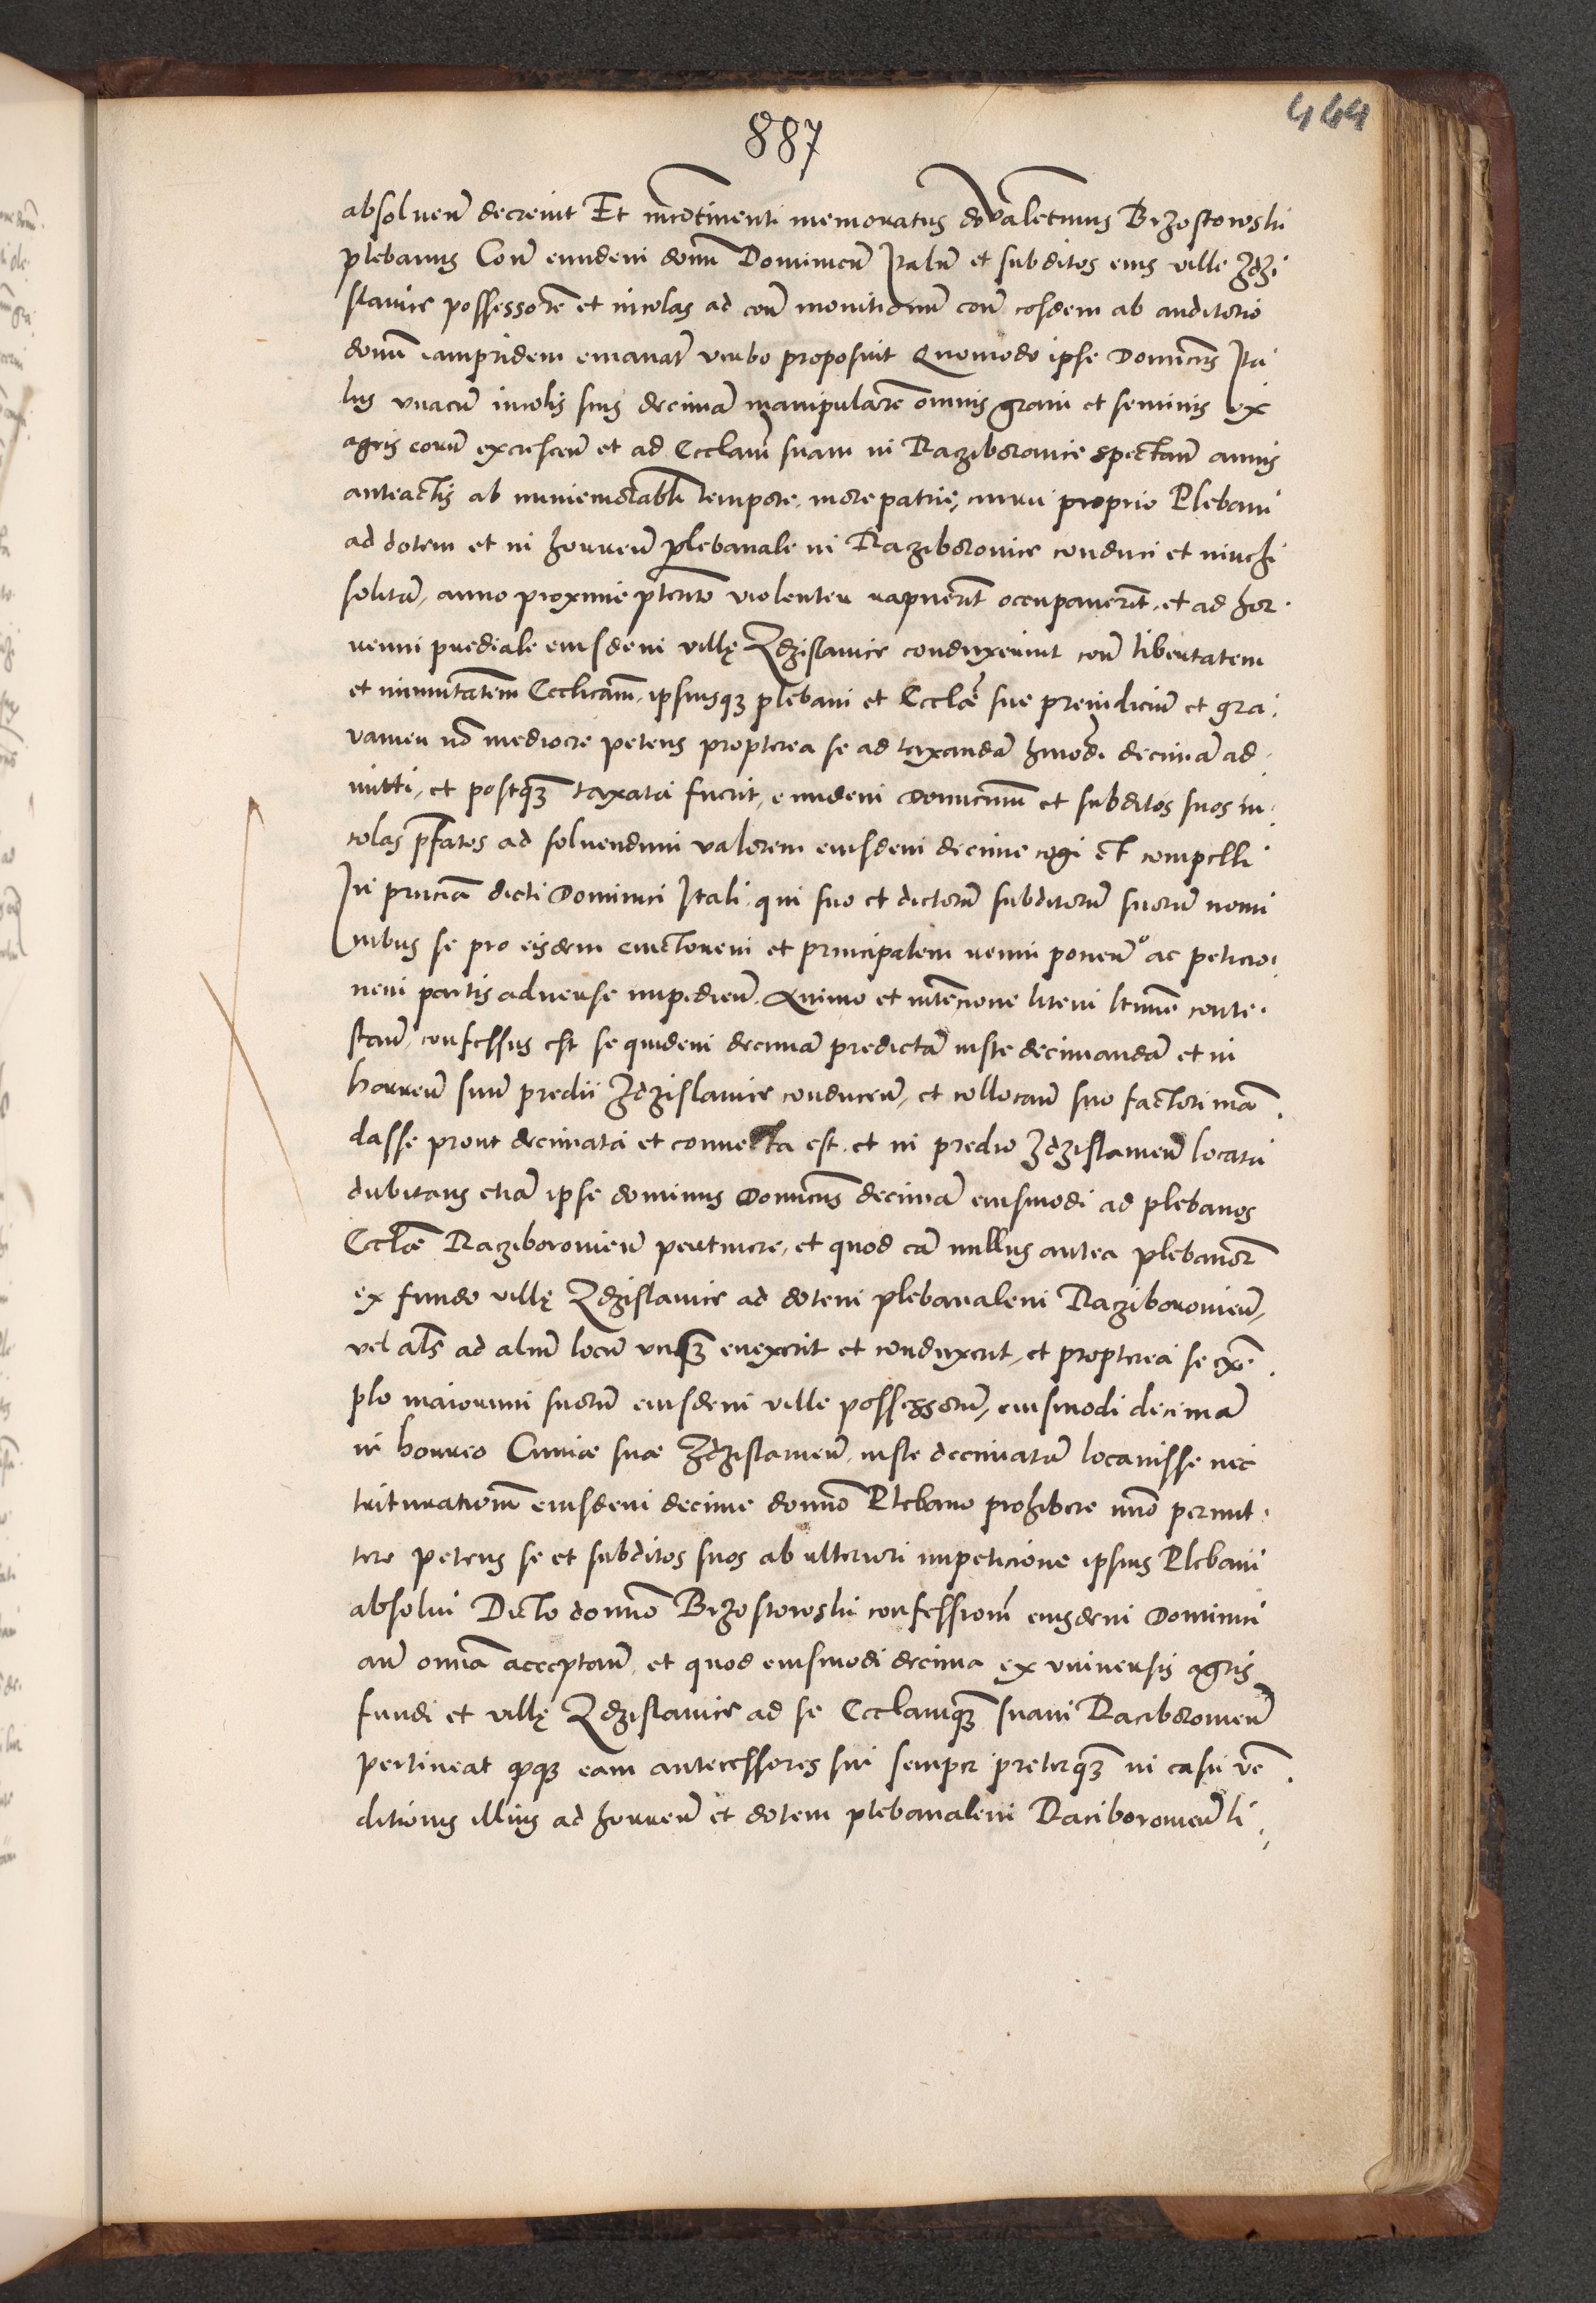 444
887
absolven̄ decrevit Et incōtinenti memoratus dō valentinus Brzostowski
plebanus Con̄ eundem donū Dominicū Italū et subditos eius ville Zdzi
slavice possessorē et incolas ad con̄ monitionū con̄ eosdem ab auditorio
donū iampridem emanat̄ verbo proposuit Quomodo ipse Dominicus Ita
lus vnacū incolis suis decimā manipularē omnis grani et seminis ex
agris eorū excrescen̄ et ad Eccl̄am suam in Raziborovice spectan̄ annis
anteactis ab immemorabli tempore. more patrie, curru proprio Plebani
ad dotem et in horreū plebanale in Raziborovice conduci et invehi
solitā, anno proxime pterito violenter rapuerīt occupaverīt, et ad hor
reum prediale eiusdem villę Zdzislavice conduxerint con̄ libertatem
et immunitatem Eccl̄icam, ipsiusqꝫ plebani et Eccl̄e sue preiudiciū et gra
vamen nō mediocre petens propterea se ad taxandā hmōdi decimā ad
mitti, et postqꝫ taxata fuerit, eundem Dominicum et subditos suos in
colas pfatos ad solvendum valorem eiusdem decime cogi et compelli
In pn̄ciā dicti Dominici Itali, qui suo et dictorū subditorū suorū nomi
nibus se pro eisdem evictorem et principalem reum ponen̄ ac peticio
nem partis adverse impedien̄. Quimo et intencione litem ltimē conte
stan̄, confessus est se quidem decimā predictā iuste decimandā et in
horreū suū predii Zdzislavice conducen̄, et collocan̄ suo factori mā
dasse prout decimata et convecta est, et in predio Zdzislavien̄ locata
dubitans etiā ipse dominus Dominicus decimā eiusmodi ad plebanos
Eccl̄e Raziborovien̄ pertinere, et quod eā nullus antea plebanor̄
ex fundo villę Zdzislavice ad dotem plebanalem Raziborovien̄,
vel al̄s ad aliū locū vnqꝫ evexerit et conduxerit, et propterea se exē
plo maiorum suorū eiusdem ville possessorū, eiusmodi decimā
in horreo Curiæ suæ Zdzislavien̄ iuste decimatā locavisse nec
triturationem eiusdem decime domino Plebano prohibere imō permit
tere petens se et subditos suos ab ulteriori impeticione ipsius Plebani
absolvi Dicto domino Brzostowski confessionem eiusdem Dominici
an̄ omīa acceptan̄, et quod eiusmodi decima ex universis agris
fundi et villę Zdzislavice ad se Eccl̄amqꝫ suam Raciborovien̄
pertineat qꝫ eam antecessores sui semper preterqꝫ in casu vē
ditionis illius ad horreū et dotem plebanalem Raciborovien̄ li